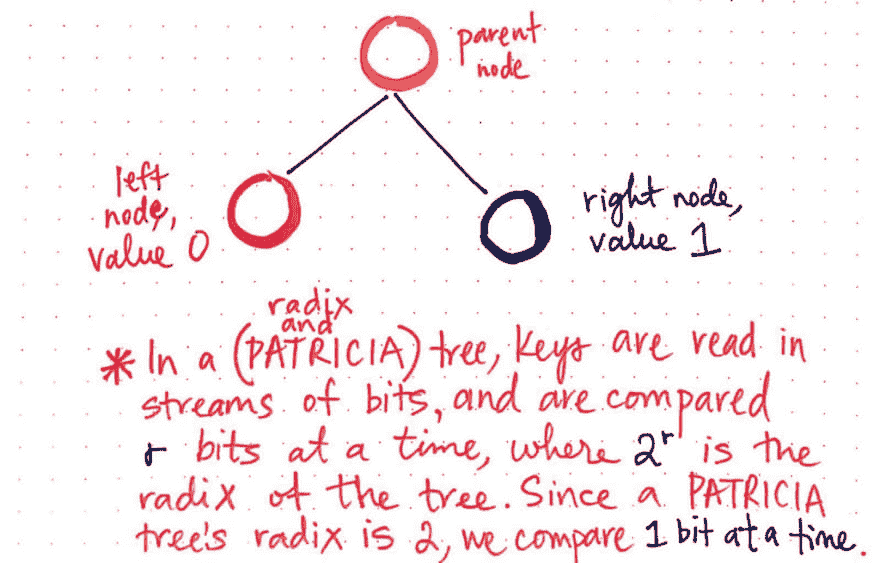 parent
node
left
node,
value 0
right node,
value 1
radix
and
* In a (PATRICIA) tree, keys are read in
streams of bits, and are compared
r bits at a time, where 2^r is the
radix of the tree. Since a PATRICIA
tree's radix is 2, we compare 1 bit at a time.